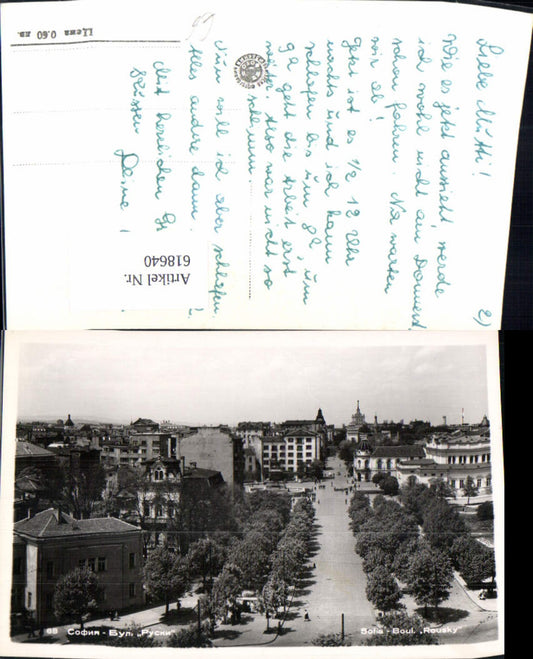 Цена 0.60 лв.
2)
Liebe Mutti!
Wie es jetzt aussieht, werde
ich wohl nicht am Donnerst.
schon fahren. Na warten
wir ab!
Jetzt ist es 1/2 12 Uhr
nachts und ich kann
schlafen bis um 8h, um
9h geht die Arbeit erst
weiter. Also war nicht so
schlimm.
Nun will ich aber schlafen.
Alles andre dann.
Mit herzlichen Gr
Küssen Deine
Artikel Nr.
618640
68 София - Бул. „Руски"
Sofia - Boul. „Rousky"